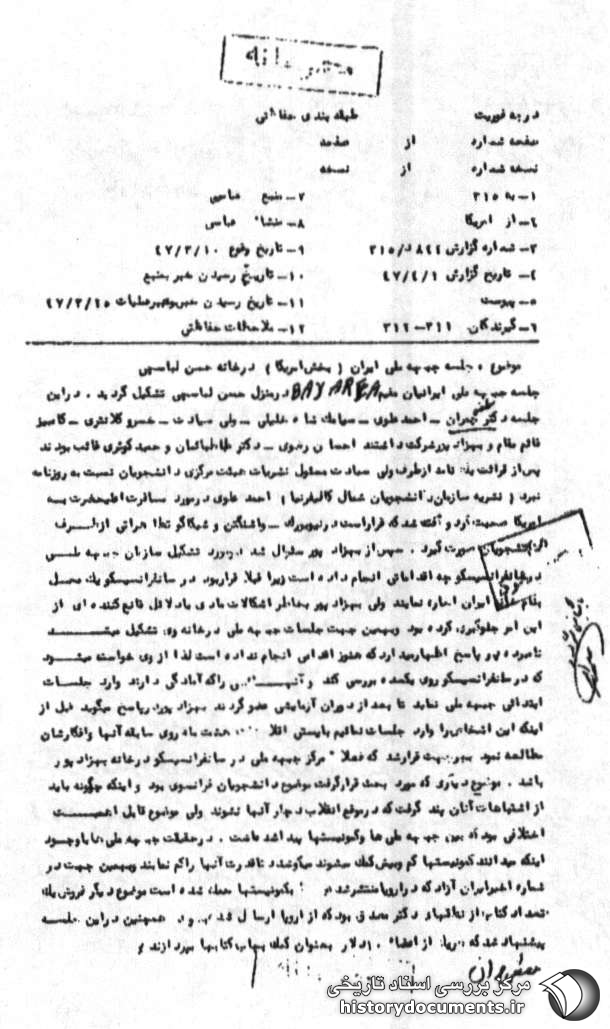 محرمانه
درجه فوریت طبقه بندی حفاظتی
صفحه شماره از صفحه
نسخه شماره از نسخه
۱ـ به ۳۱۵ ۷ـ منبع عباسی
۲ـ از امریکا ۸ـ منشاء عباسی
۳ـ شماره گزارش ۸۴۴د/۳۱۵ ۹ـ تاریخ وقوع ۴۷/۳/۱۰
۴ـ تاریخ گزارش ۴۷/۴/۱ ۱۰ـ تاریخ رسیدن خبر بمنبع
۵ـ پیوست ۱۱ـ تاریخ رسیدن خبر برهبر عملیات ۴۷/۳/۲۵
۶ـ گیرندگان ۳۱۱ـ ۳۱۲ ۱۲ـ ملاحظات حفاظتی
موضوع : جلسه جبهه ملی ایران ( بخش امریکا ) در خانه حسن لباسچی
جلسه جبهه ملی ایرانیان مقیم BAY AREA در منزل حسن لباسچی تشکیل گردید . در این
جلسه دکتر چمران ـ احمد علوی ـ سیامک شاه خلیلی ـ ولی سیادت ـ خسرو کلانتری ـ کامبیز
قائم مقام و بهزاد پور شرکت داشتند احسان رضوی ـ دکتر طباطبائی و حمید کوثری غائب بودند
پس از قرائت نامه از طرف ولی سیادت مسئول نشریات هیئت مرکزی دانشجویان نسبت به روزنامه
نبرد ( نشریه سازمان دانشجویان شمال کالیفرنیا ) احمد علوی در مورد مسافرت اعلیحضرت به
امریکا صحبت کرد و گفته شد که قرار است در نیویورک ـ واشنگتن و شیکاگو تظاهراتی از طرف
دانشجویان صورت گیرد . سپس از بهزاد پور سئوال شد در مورد تشکیل سازمان جبهه ملی
در سانفرانسیسکو چه اقداماتی انجام داده است زیرا قبلا قرار بود در سانفرانسیسکو یک محل
بنام خانه ایران اجاره نمایند ولی بهزاد پور بخاطر اشکالات مادی با دلائل قانع کننده ای از
این امر جلوگیری کرده بود و بهمین جهت جلسات جبهه ملی در خانه وی تشکیل میشد
نامبرده در پاسخ اظهار میدارد که هنوز اقدامی انجام نداده است لذا از وی خواسته میشود
که در سانفرانسیسکو روی یکعده بررسی کند و آنهائی را که آمادگی دارند وارد جلسات
ابتدائی جبهه ملی نماید تا بعد از دوران آزمایشی عضو گردند بهزاد پور در پاسخ میگوید قبل از
اینکه این اشخاص را وارد جلسات نمائیم بایستی اقلا هشت ماه روی سابقه آنها و افکارشان
مطالعه نمود بهر جهت قرار شد که فعلا مرکز جبهه ملی در سانفرانسیسکو در خانه بهزاد پور
باشد . موضوع دیگری که مورد بحث قرار گرفت موضوع دانشجویان فرانسوی بود و اینکه چگونه باید
از اشتباهات آنان پند گرفت که در موقع انقلاب دچار آنها نشوند ولی موضوع قابل اهمیت
اختلافی بود که بین جبهه ملی ها و کمونیستها پیدا شده است . در حقیقت جبهه ملی ها با وجود
اینکه میدانند کمونیستها کم و بیش کمک میشوند میکوشند تا قدرت آنها را کم نمایند و بهمین جهت در
شماره اخیر ایران آزاد که در اروپا منتشر شده بکمونیستها حمله شده است موضوع دیگر فروش یک
تعداد کتاب از نطقهای دکتر مصدق بود که از اروپا ارسال شده بود همچنین در این جلسه
پیشنهاد شد که هر یک از اعضاء دلار بعنوان کمک بهای کتابها بپردازند
مرکز بررسی اسناد تاریخی
historydocuments.ir